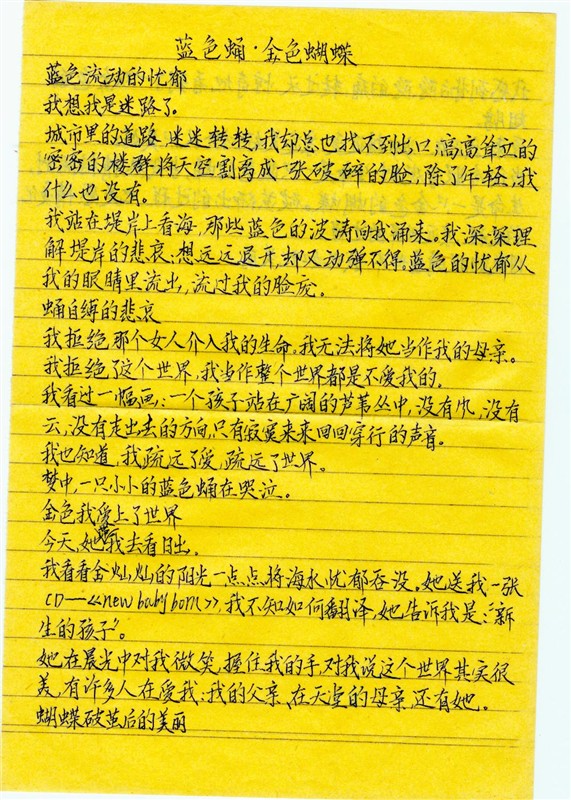 蓝色蛹·金色蝴蝶
蓝色流动的忧郁
我想我是迷路了。
城市里的道路迷迷转转，我却总也找不到出口，高高耸立的
密密的楼群将天空割离成一张破碎的脸，除了年轻，我
什么也没有。
我站在堤岸上看海，那些蓝色的波涛向我涌来。我深深理
解堤岸的悲哀：想远远退开，却又动弹不得。蓝色的忧郁从
我的眼睛里流出，流过我的脸庞。
蛹自缚的悲哀
我拒绝那个女人介入我的生命。我无法将她当作我的母亲。
我拒绝了这个世界，我当作整个世界都是不爱我的。
我看过一幅画：一个孩子站在广阔的芦苇丛中，没有风，没有
云，没有走出去的方向，只有寂寞来来回回穿行的声音。
我也知道，我疏远了爱，疏远了世界。
梦中，一只小小的蓝色蛹在哭泣。
金色我爱上了世界
今天，她带我去看日出。
我看着金灿灿的阳光一点点将海水忧郁吞没。她送我一张
CD—《new baby born》，我不知如何翻译，她告诉我是：“新
生的孩子”。
她在晨光中对我微笑，握住我的手，对我说这个世界其实很
美，有许多人在爱我：我的父亲、在天堂的母亲，还有她。
蝴蝶破茧后的美丽